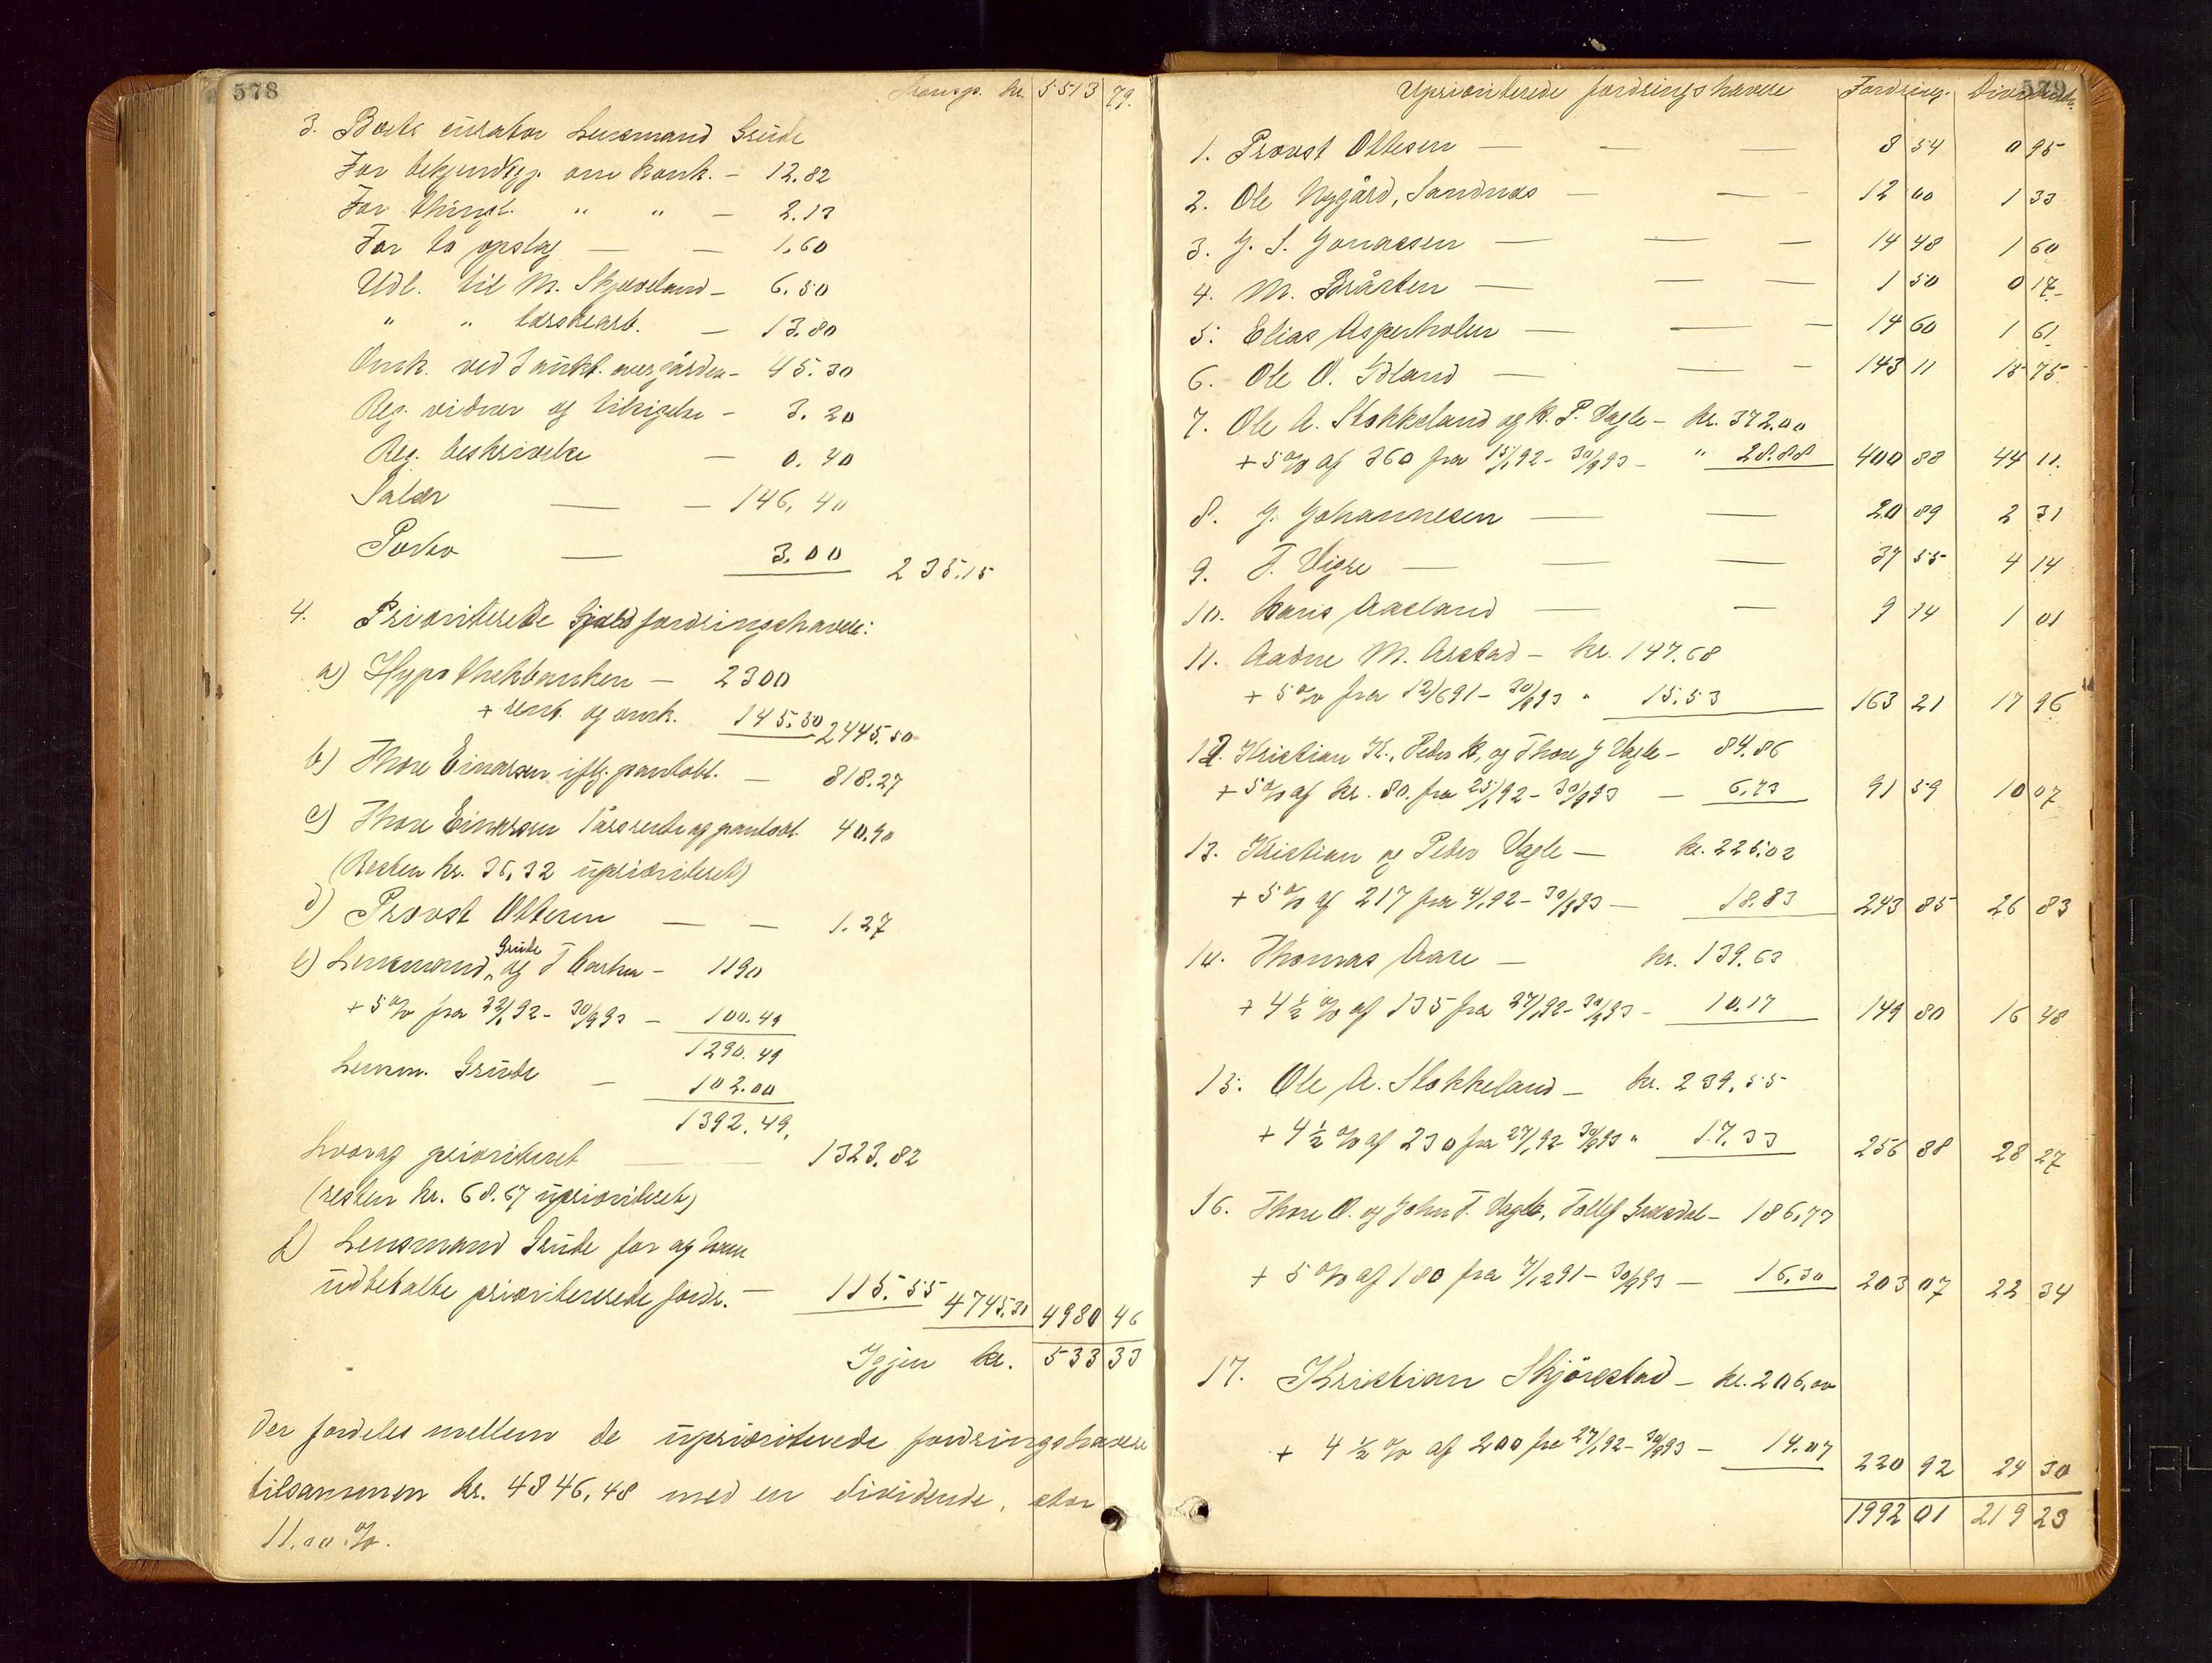 578
Transp. kr. 5513 79.
3. Boets curator Lensmand Grude
For bekjendtgj. om konk. – 12.82
For thingl. " " – 2.13
For to opslag — – 1.60
Udl. til M. Skjæveland – 6.50
" " tærskearb. – 13.80
Omk. ved 1 aukt. over gården – 45.30
Reg. vidner og tilsigelse – 3.20
Reg. beskrivelse – 0.40
Salær — – 146,40
Porto — 3.00 235.15
4. Prioriterede Gjeldsfordringshavere:
a) Hypothekbanken – 2300
+ rent. og omk. 145.50 2445.50
b) Thore Einarsen iflg. pantobl. – 818.27
c) Thore Einarsen 1 års rente og pantobl. 40.90
(Resten kr. 36,32 uprioriteret)
d) Provst Ottesen — – 1.27
e) Lensmand Grude og T Aarhu – 1190
+ 5 % fra 22/1 92 – 30/9 93 – 100.49
1290.49
Lensm. Grude – 102.00
1392.49,
hvorag prioriteret — — 1323.82
(resten kr. 68.67 uprioriteret)
f) Lensmand Grude for ag ham
udbetalte prioritererede fordr. – 115.55 4745.30 4980 46
Igjen kr. 533 33
Der fordeles mellem de uprioriterede fordringshavere
tilsammen kr. 4846,48 med en dividende, stor
11.00 %.
579
Uprioriterede fordringshavere Fordring. Dividende.
1. Provst Ottesen — — — 8 54 0 95
2. Ole Nygård, Sandnæs — — 12 00 1 33
3. J. S. Jonassen — — — 14 48 1 60
4. M. Bråsten — — — 1 50 0 17
5. Elias Asperholen — — — 14 60 1 61
6. Ole O. Idland — — — 143 11 15 75
7. Ole A. Stokkeland og K. P. Vagle – kr. 372.00
+ 5 % af 360 fra 15/1 92 – 30/9 93 – " 28.88 400 88 44 11.
8. J. Johannesen — — 20 89 2 31
9. T. Vigre — — — 37 55 4 14
10. Hans Aasland — — 9 14 1 01
11. Aadne M. Arstad – kr. 147.68
+ 5 % fra 12/6 91 – 30/9 93 " 15.53 163 21 17 96
12. Kristian K., Peder K, og Thore J Vagle – 84.86
+ 5 % af kr. 80. fra 25/1 92 – 30/9 93 – 6,73 91 59 10 07
13. Kristian og Peder Vagle — kr. 225.02
+ 5 % af 217 fra 4/1 92 – 30/9 93 – 18.83 243 85 26 83
14. Thomas Aase – kr. 139.63
+ 4 ½ % af 135 fra 27/1 92 – 30/9 93 – 10.17 149 80 16 48
15. Ole A. Stokkeland – kr. 239,55
+ 4 ½ % af 230 fra 27/1 92 30/9 93 " 17.33 256 88 28 27
16. Thore O. og John T. Vagle, Tollef – 186,77
+ 5 % af 180 fra 7/12 91 – 30/9 93 – 16,30 203 07 22 34
17. Kristian Skjörestad – kr. 206,00
+ 4 ½ % af 200 fra 27/1 92 – 30/9 93 – 14.07 220 92 24 30
1992 01 219 23